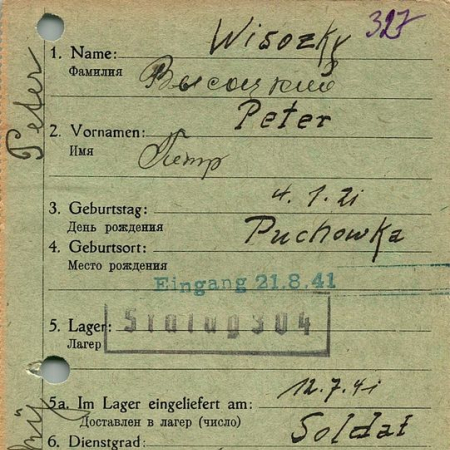 Wisozky 327
1. Name:
Фамилия Высоцкий
Peter
2. Vornamen: Peter
Имя Петр
3. Geburtstag: 4.1.21
День рождения
4. Geburtsort: Puchowka
Место рождения
Eingang 21.8.41
5. Lager: Stalag 304
Лагерь
5a. Im Lager eingeliefert am: 12.7.41
Доставлен в лагерь (число)
6. Dienstgrad: Soldat